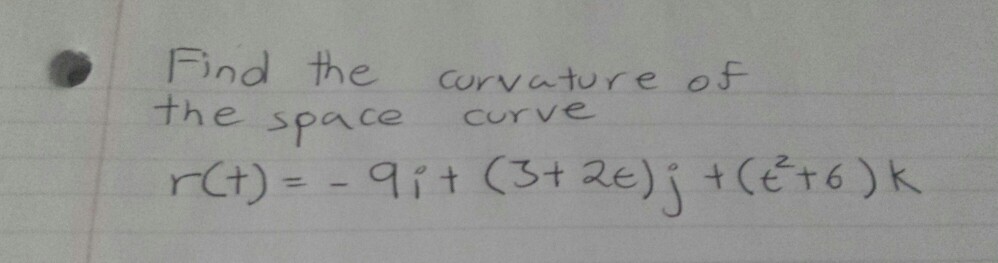 Find the curvature of
the space curve
r(t) = - 9i + (3 + 2t)j + (t² + 6)k